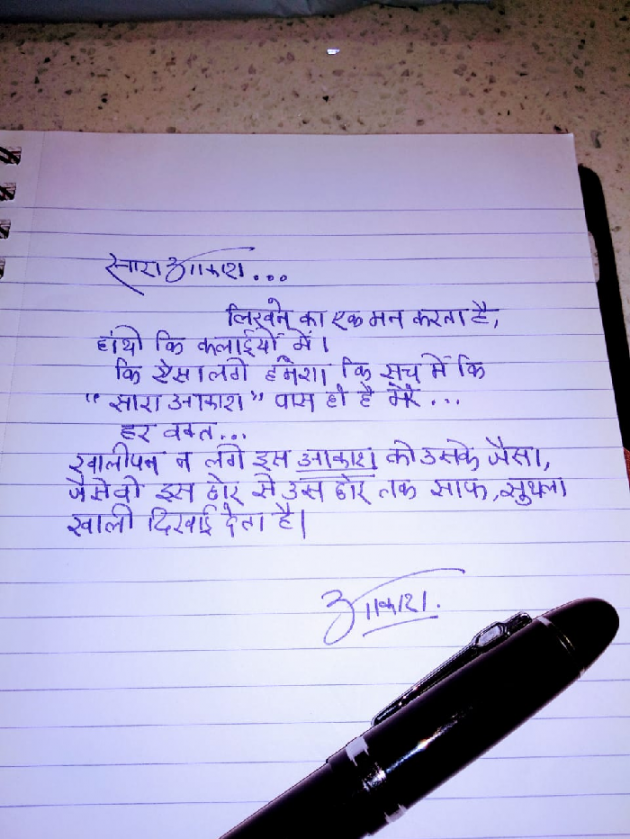 सारा आकाश...
लिखने का एक मन करता है,
हांथो कि कलाईयों में।
कि ऐसा लगे हमेशा कि सच में कि
"सारा आकाश" पास ही है मेरे...
हर वक्त...
खालीपन न लगे इस आकाश को उसके जैसा,
जैसे वो इस छोर से उस छोर तक साफ, सुथला
खाली दिखाई देता है।
आकाश.